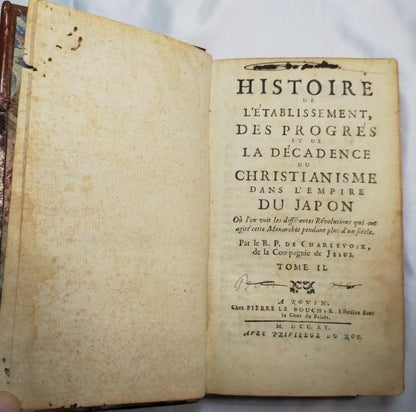 HISTOIRE
DE
L'ÉTABLISSEMENT,
DES PROGRÉS
ET DE
LA DÉCADENCE
DU
CHRISTIANISME
DANS L'EMPIRE
DU JAPON
Où l'on voit les différentes Révolutions qui ont
agité cette Monarchie pendant plus d'un siécle.
Par le R. P. DE CHARLEVOIX,
de la Compagnie de JESUS.
TOME II.
A ROUEN,
Chez PIERRE LE BOUCHER, Libraire dans
la Cour du Palais.
M. DCC. XV.
AVEC PRIVILEGE DU ROI.